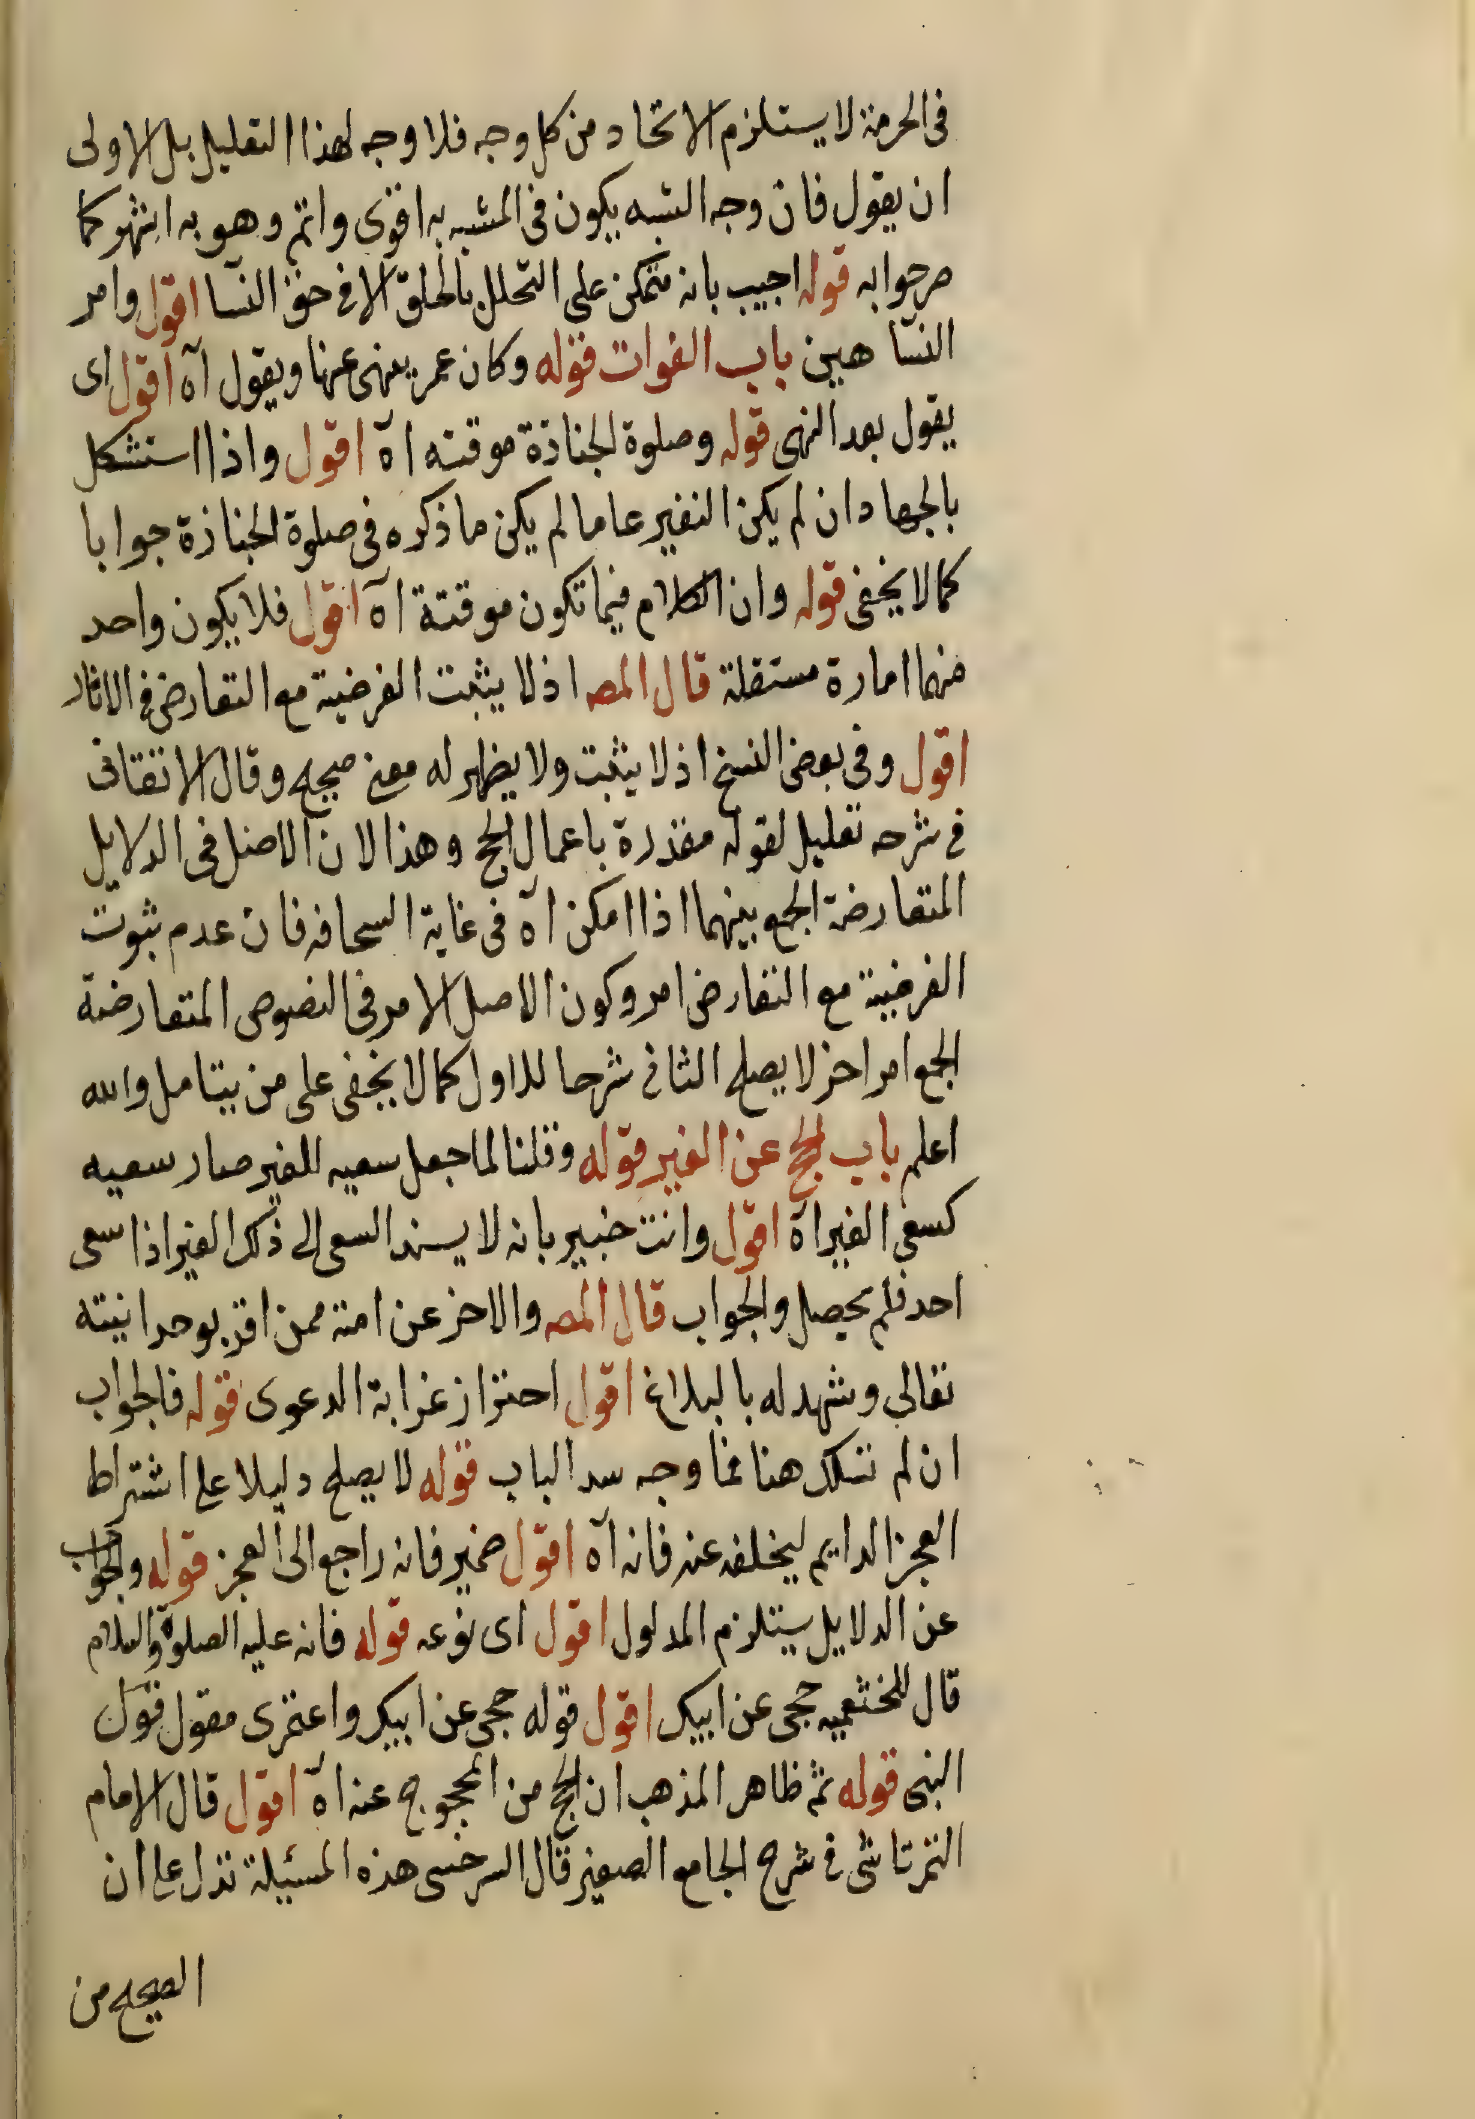 فى الحرمة لا يستلزم الاتحاد من كل وجه فلا وجه لهذا التعليل بل الاولى
ان يقول فان وجه الشبه يكون فى المشبه به اقوى واتم وهو به اشهر كما
مر جوابه قوله اجيب بانه متمكن على التحلل بالحلق الا فى حق النسآ اقول وامر
النسآ هين باب الفوات قوله وكان عمر ينهى عنها ويقول آه اقول اى
يقول بعد النهى قوله وصلوة الجنازة موقتة اه اقول واذا استشكل
بالجهاد ان لم يكن النفير عاما لم يكن ما ذكره فى صلوة الجنازة جوابا
كما لا يخفى قوله وان الكلام فيما تكون موقتة آه اقول فلا يكون واحد
منهما امارة مستقلة قال المص اذ لا يثبت الفرضية مع التعارض فى الاثار
اقول وفى بعض النسخ اذ لا يثبت ولا يظهر له معنى صحيح وقال الاتقانى
فى شرحه تعليل لقوله مقدرة باعمال الحج وهذا لان الاصل فى الدلايل
المتعارضة الجمع بينهما اذا امكن آه فى غاية السخافه فان عدم ثبوت
الفرضية مع التعارض امر وكون الاصل الامر فى النصوص المتعارضة
الجمع امر اخر لا يصلح الثانى شرحا للاول كما لا يخفى على من يتامل والله
اعلم باب الحج عن الغير قوله وقلنا لما جعل سعيه للغير صار سعيه
كسعى الغير آه اقول وانت خبير بانه لا يسند السعى الى ذلك الغير اذا سعى
احد فلم يحصل والجواب قال المص والاخر عن امته ممن اقر بوحدانيته
تعالى وشهد له بالبلاغ اقول احتراز عن ابة الدعوى قوله فالجواب
ان لم نسلك هنا فما وجه سد الباب قوله لا يصلح دليلا على اشتراط
العجز الدايم ليخلفه عنه فانه آه اقول ضمير فانه راجع الى العجز قوله والجواب
عن الدلايل يستلزم المدلول اقول اى نوعه قوله فانه عليه الصلوة والسلام
قال للخثعميه حجى عن ابيك اقول قوله حجى عن ابيك واعتمرى مقول قول
النبى قوله ثم ظاهر المذهب ان الحج من المحجوج عنه آه اقول قال الامام
التمرتاشى فى شرح الجامع الصغير قال السرخسى هذه المسئلة تدل على ان
الصحيح من